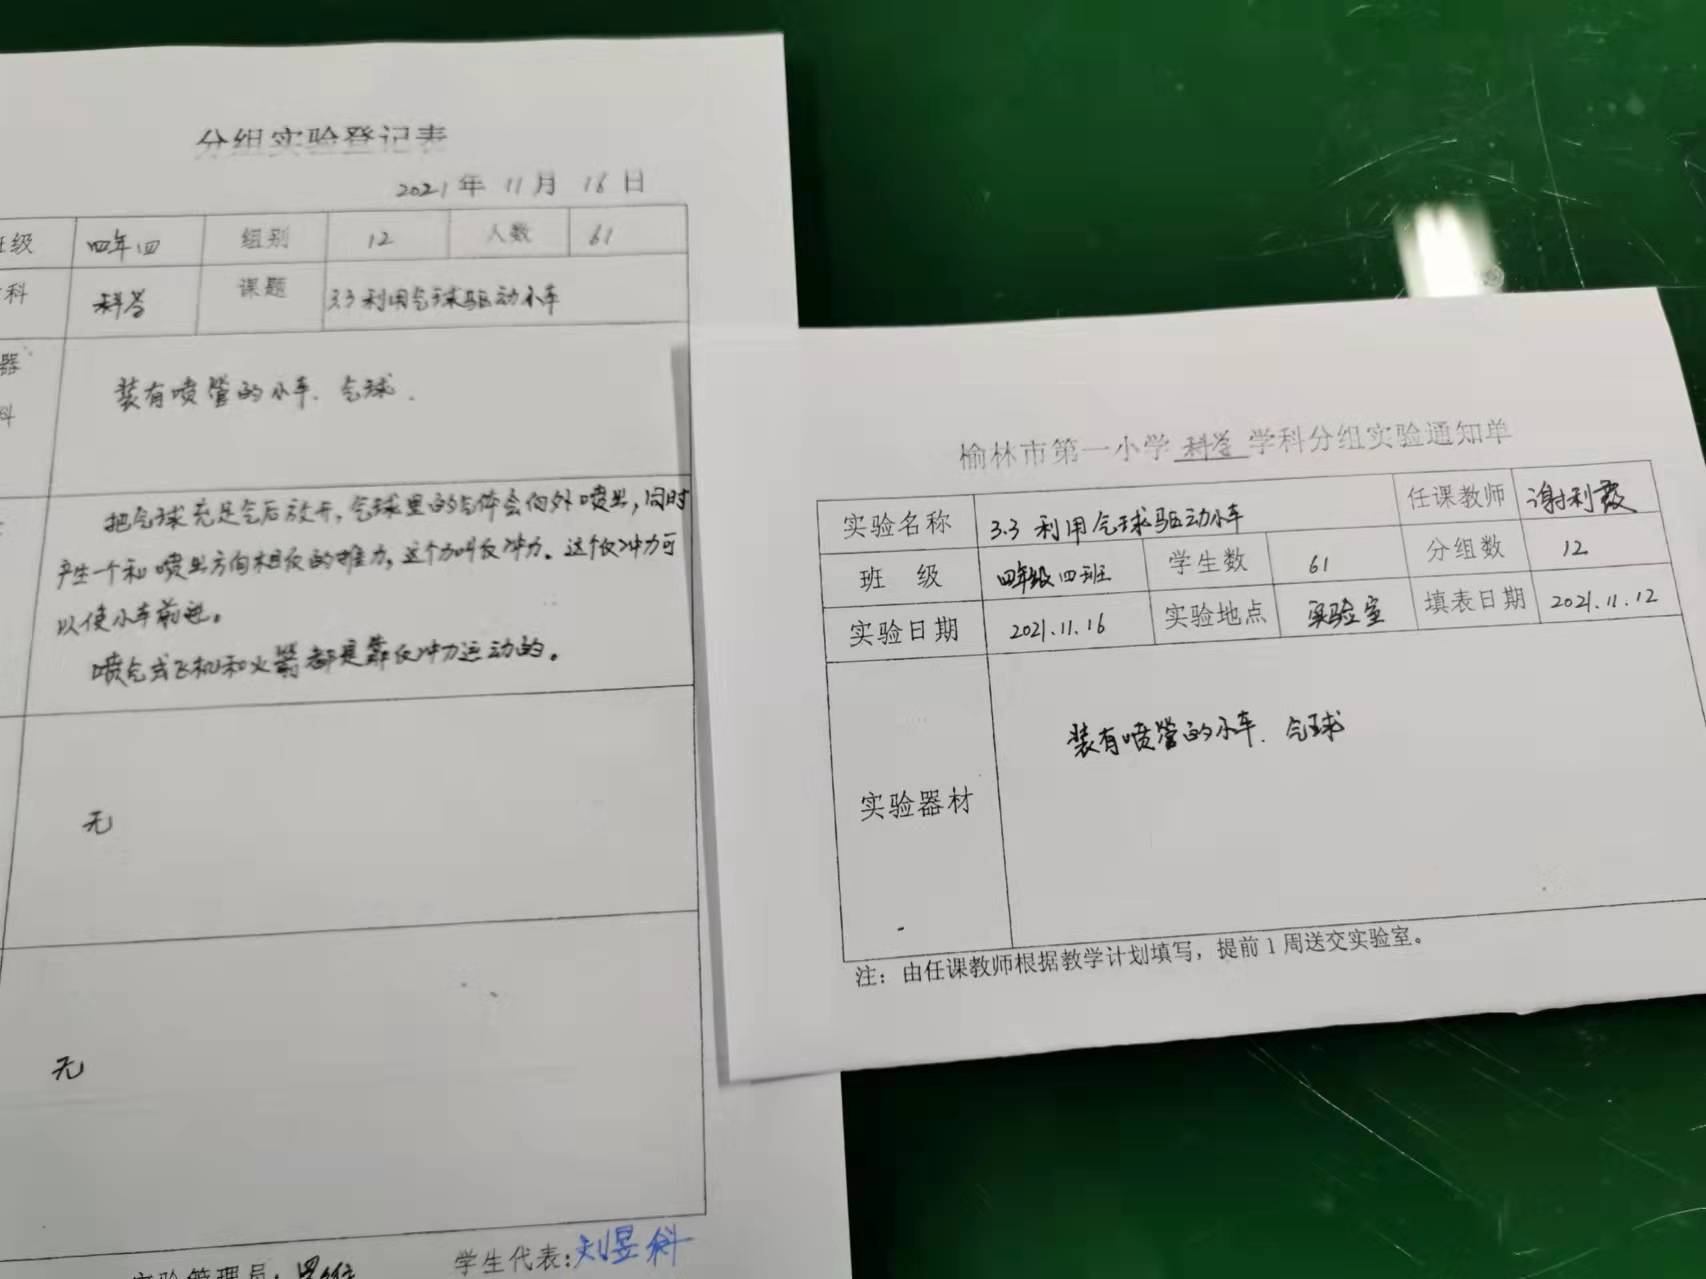 分组实验登记表
2021年 11月 16日
班级 四年四 组别 12 人数 61
科 科学 课题 3.3 利用气球驱动小车
器
科
装有喷管的小车、气球.
把气球充足气后放开,气球里的气体会向外喷出,同时
产生一个和喷出方向相反的推力,这个力叫反冲力。这个反冲力可
以使小车前进。
喷气式飞机和火箭都是靠反冲力运动的。
无
无
实验管理员:
学生代表:刘昱斜
榆林市第一小学 科学 学科分组实验通知单
实验名称 3.3 利用气球驱动小车 任课教师 谢利霞
班 级 四年级四班 学生数 61 分组数 12
实验日期 2021.11.16 实验地点 实验室 填表日期 2021.11.12
实验器材 装有喷管的小车、气球
注:由任课教师根据教学计划填写,提前1周送交实验室。